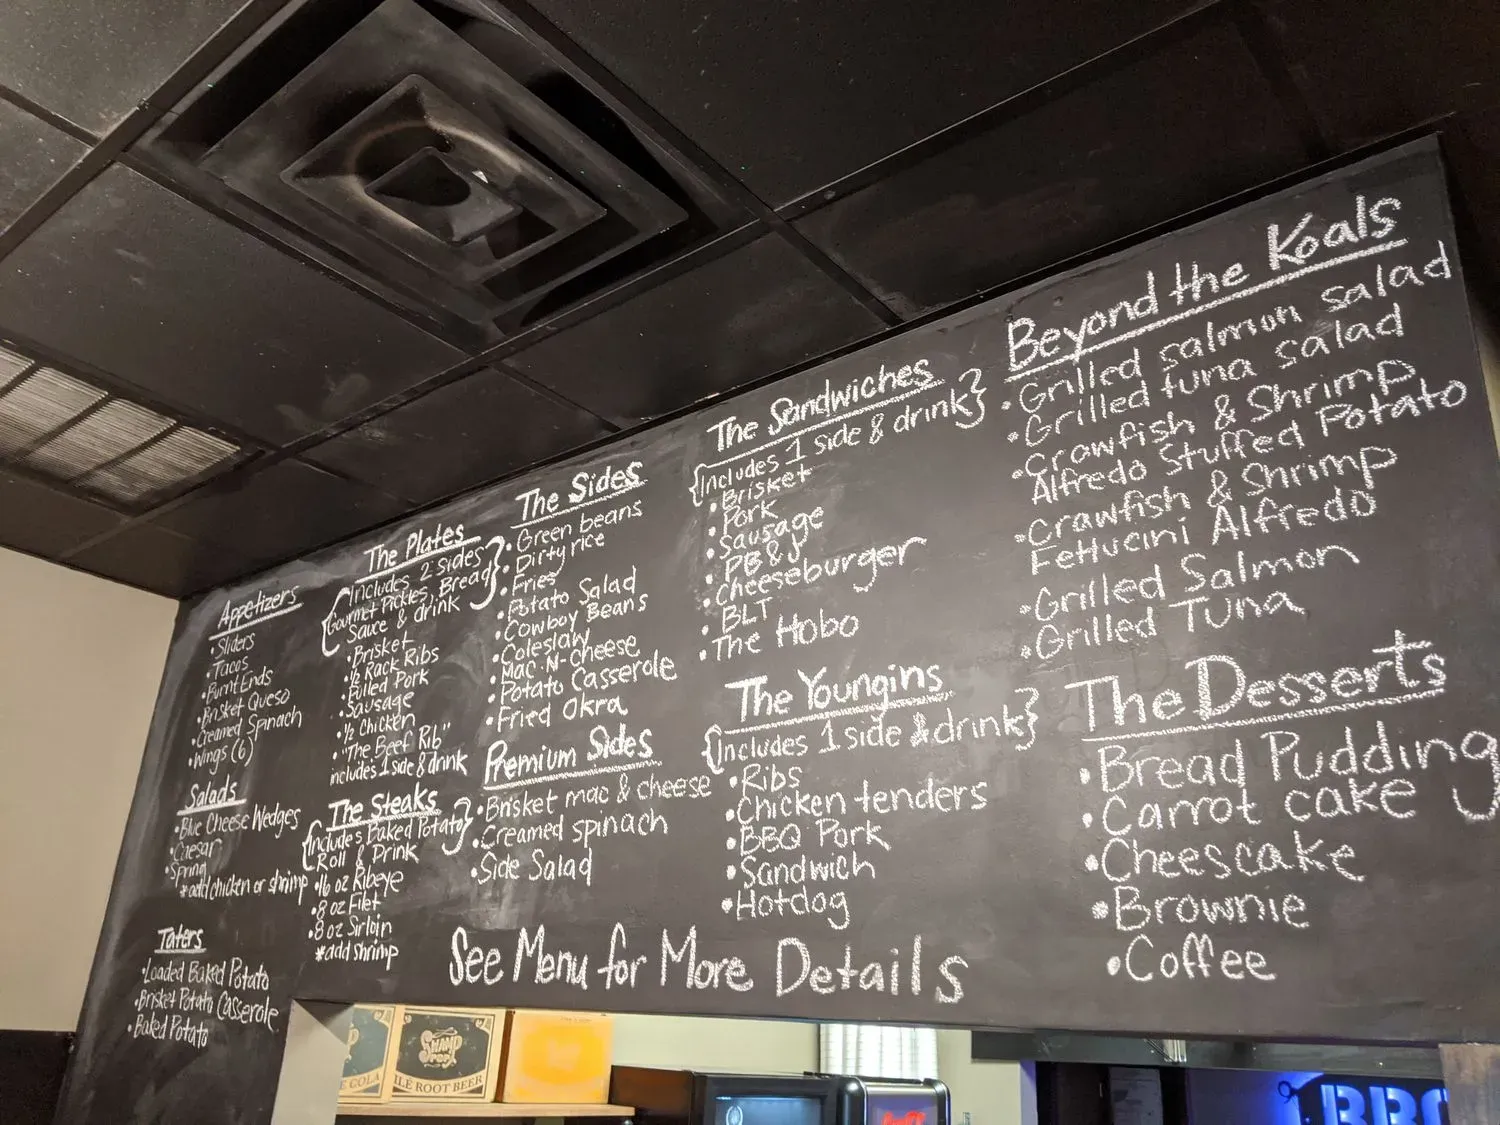 Appetizers
• Sliders
• Tacos
• Burnt Ends
• Brisket Queso
• Creamed Spinach
• Wings (6)
Salads
• Blue Cheese Wedges
• Caesar
• Spring
*add chicken or shrimp
Taters
• Loaded Baked Potato
• Brisket Potato Casserole
• Baked Potato
The Plates
{Includes 2 sides
Gourmet Pickles, Bread
Sauce & drink}
• Brisket
• ½ Rack Ribs
• Pulled Pork
• Sausage
• ½ Chicken
• "The Beef Rib"
includes 1 side & drink
The Steaks
{Includes Baked Potato
Roll & Drink}
• 16 oz Ribeye
• 8 oz Filet
• 8 oz Sirloin
*add shrimp
The Sides
• Green beans
• Dirty rice
• Fries
• Potato Salad
• Cowboy Beans
• Coleslaw
• Mac-N-Cheese
• Potato Casserole
• Fried Okra
Premium Sides
• Brisket mac & cheese
• Creamed spinach
• Side Salad
The Sandwiches
{Includes 1 side & drink}
• Brisket
• Pork
• Sausage
• PB & J
• Cheeseburger
• BLT
• The Hobo
The Youngins
{Includes 1 side & drink}
• Ribs
• Chicken tenders
• BBQ Pork
• Sandwich
• Hotdog
Beyond the Koals
• Grilled salmon salad
• Grilled tuna salad
• Crawfish & Shrimp
Alfredo Stuffed Potato
• Crawfish & Shrimp
Fettucini Alfredo
• Grilled Salmon
• Grilled Tuna
The Desserts
• Bread Pudding
• Carrot cake
• Cheescake
• Brownie
• Coffee
See Menu for More Details
COLA
SWAMP
POP
ROOT BEER
BBQ